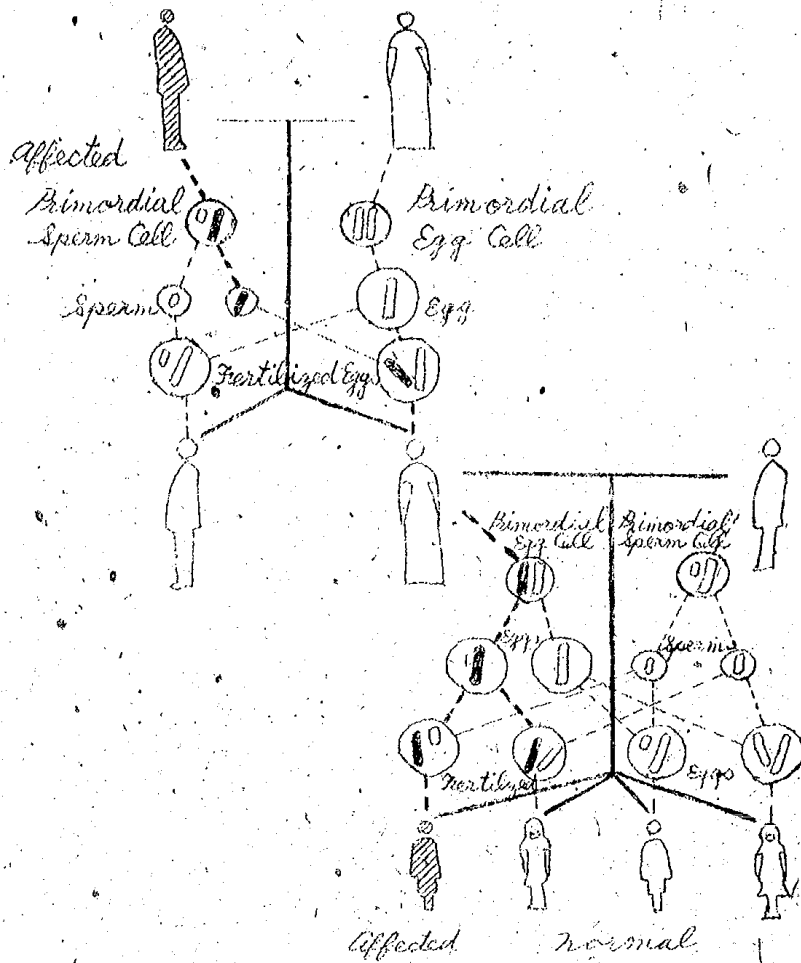 Affected
Primordial
Sperm Cell
Primordial
Egg Cell
Sperm
Egg
Fertilized Eggs
Primordial
Egg Cell
Primordial
Sperm Cell
Eggs
Sperms
Fertilized
Eggs
Affected
Normal